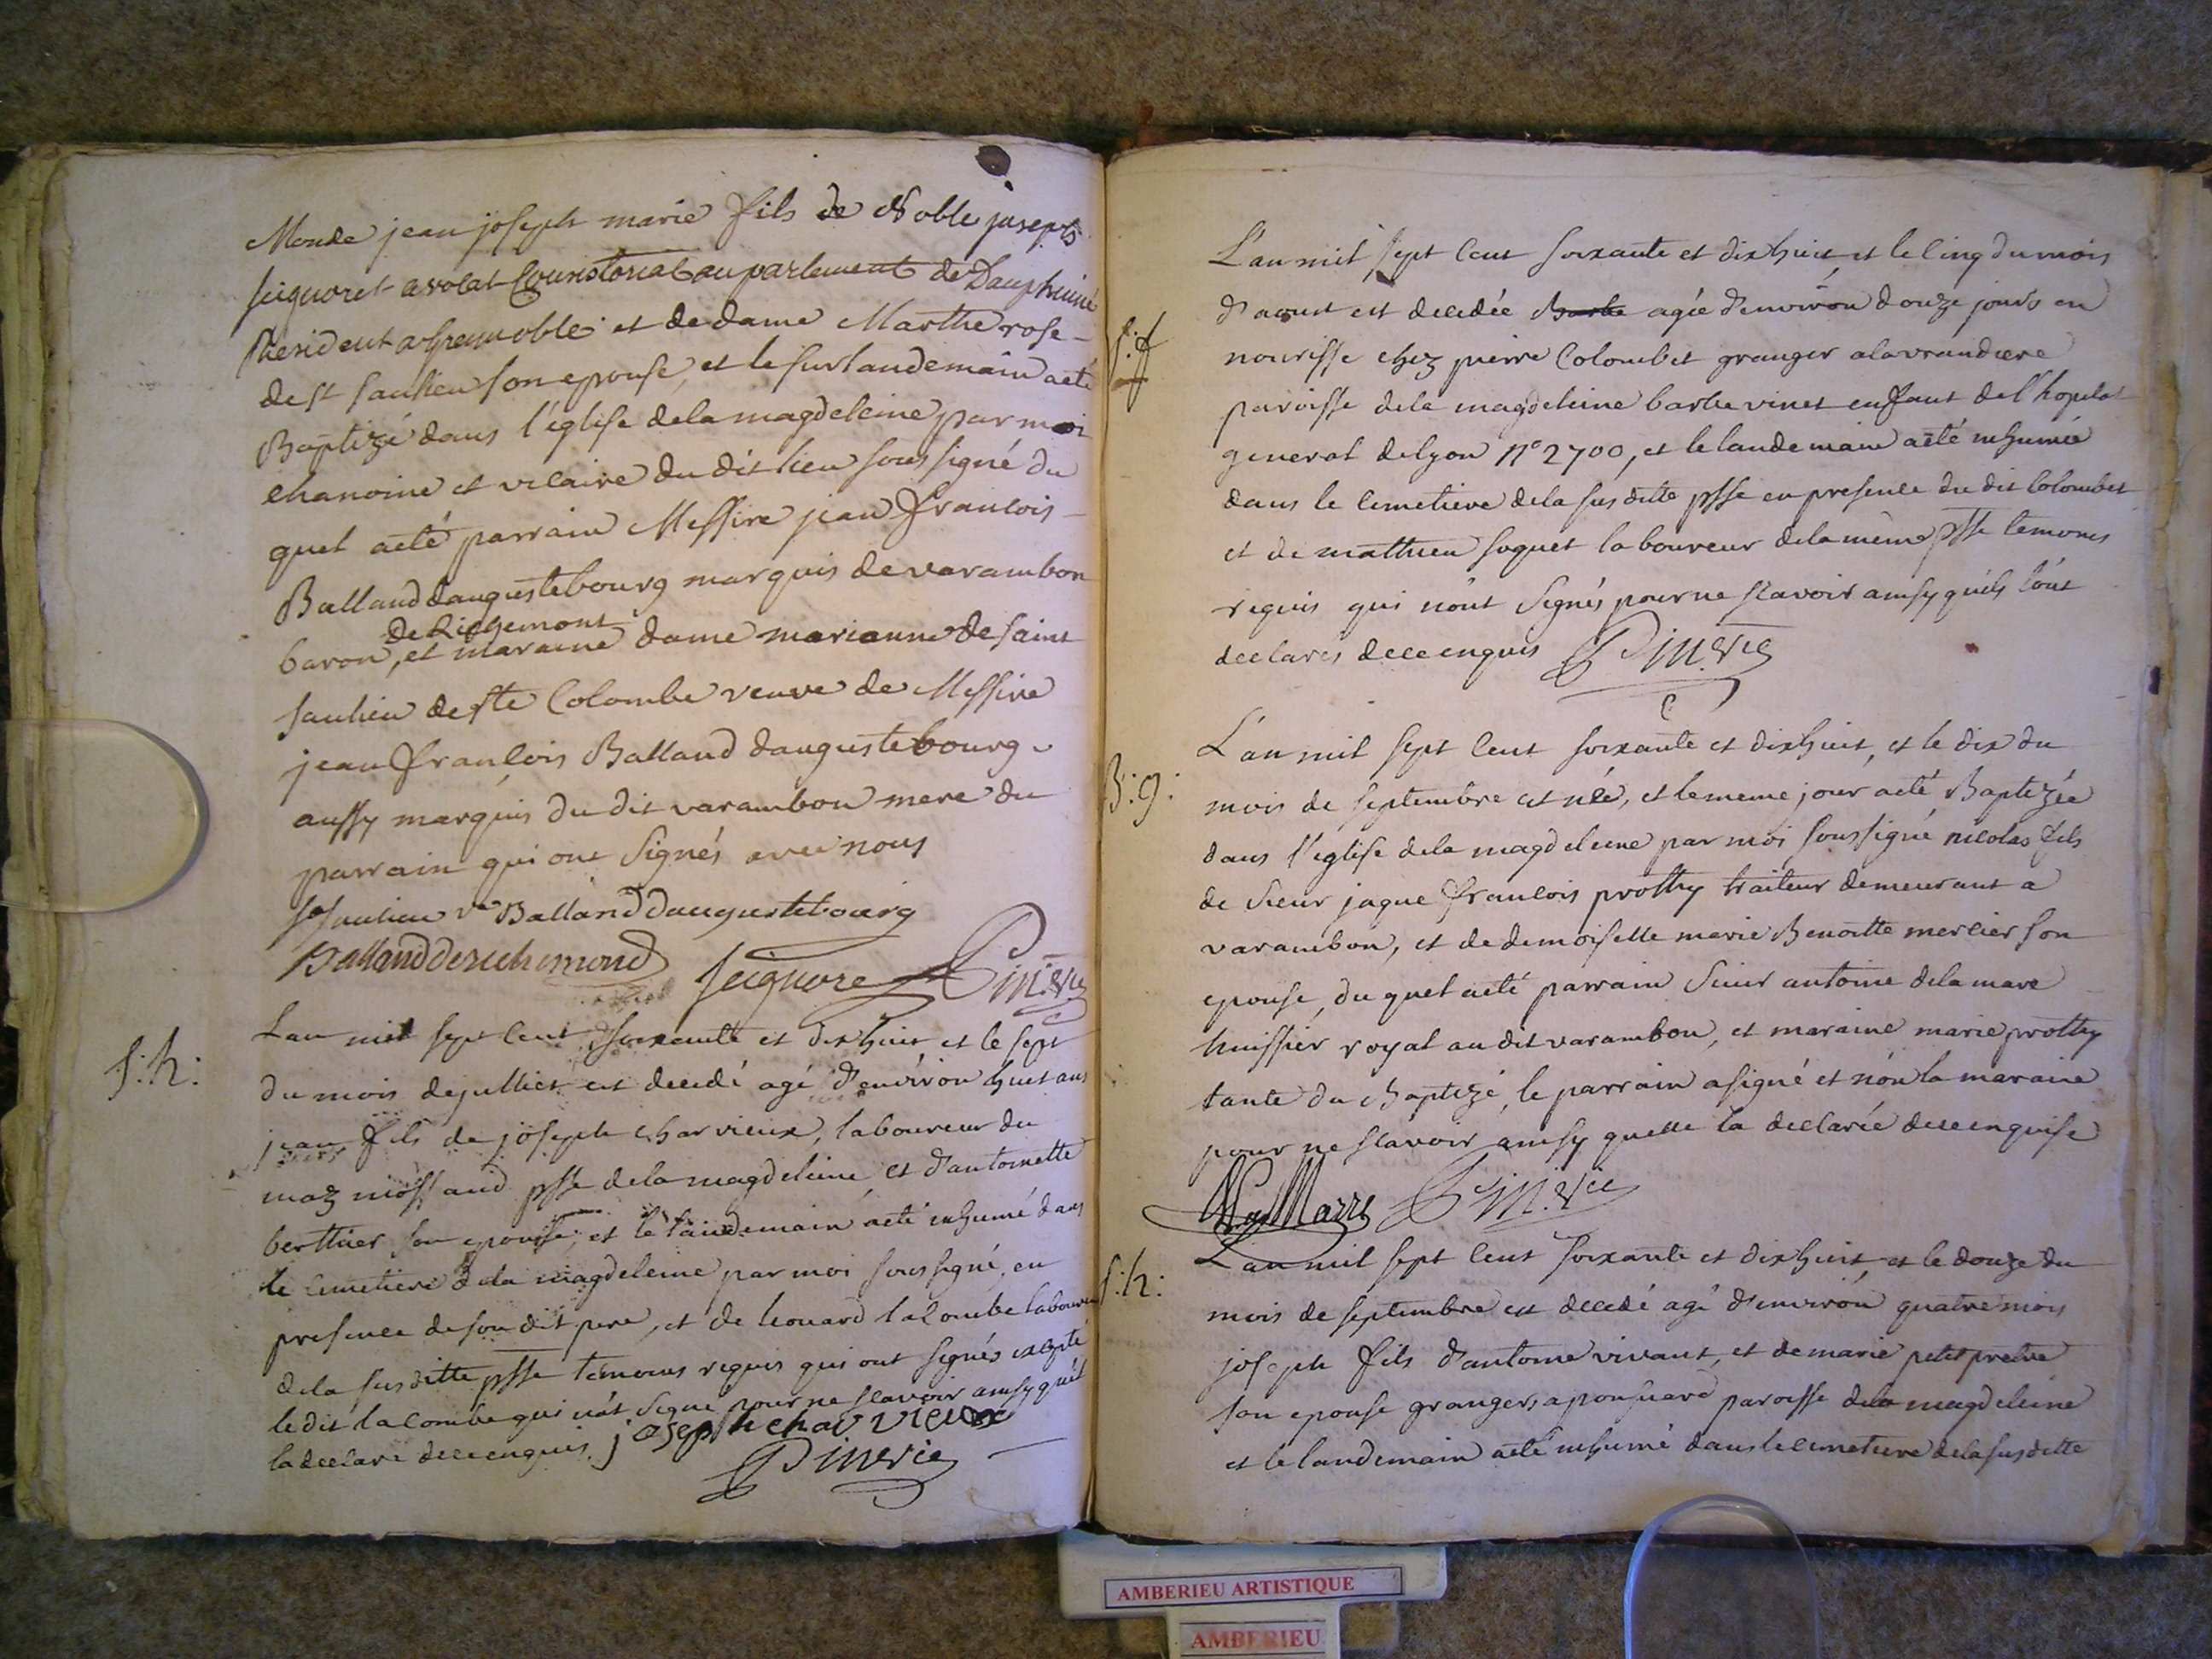 Monde jean joseph marie fils de Noble joseph
seignoret avocat Consistorial au parlement de Dauphiné
Resident a Grenoble et de dame Marthe rose
de st saulieu son epouse, et le surlandemain aeté
Baptizé dans l'église dela magdeleine par moi
chanoine et vicaire du dit lieu soussigné du
quel aeté parrain Messire jean francois
Balland daugustebourg marquis de varambon
de Richemont
baron, et maraine dame marianne de saint
saulieu de ste Colombe veuve de Messire
jean francois Balland daugustebourg
aussy marquis du dit varambon mere du
parrain qui ont signés avec nous
st saulieu ve Balland daugustebourg
Balland de richemond seignoret Pin vic
S:h:
L'an mil sept cent soixante et dixhuit et le sept
du mois de julliet est decedé agé d'environ huit ans
jean fils de joseph charvieux, laboureur du
maz mossaud psse dela magdeleine et d'antoinette
berthier son epouse, et le landemain aeté inhumé dans
le cimetiere dela magdeleine par moi soussigné, en
presence de son dit pere, et de leonard lacombe laboureur
dela sus ditte psse temoins requis qui ont signés excepté
le dit lacombe qui n'at signé pour ne scavoir ainsy quil
la declaré de ce enquis. joseph charvieux
Pin vic
S:f
L'an mil sept cent soixante et dixhuit, et le cinq du mois
d'aoust est decedée Barbe agée d'environ douze jours en
nourisse chez pierre Colombet granger a lavrandiere
paroisse dela magdeleine barbe vinet enfant de l'hopital
general de lyon n° 2700, et le landemain aeté inhumée
dans le cimetiere dela sus ditte psse en presence du dit Colombet
et de mathieu soguet laboureur dela même psse temoins
requis qui n'ont signés pour ne scavoir ainsy quils l'ont
declarés de ce enquis Pin vic
B:g:
L'an mil sept cent soixante et dixhuit, et le dix du
mois de septembre est née, et le meme jour aeté Baptizée
dans l'eglise dela magdeleine par moi soussigné nicolas fils
de sieur jaque francois prothy traiteur demeurant a
varambon, et de demoiselle marie Benoitte mercier son
epouse, du quel aeté parrain sieur antoine delamare
huissier royal au dit varambon, et maraine marie prothy
tante du Baptizé, le parrain a signé et non la maraine
pour ne scavoir ainsy quelle la declarée de ce enquise
Pin vic
S:h:
L'an mil sept cent soixante et dixhuit et le douze du
mois de septembre est decedé agé d'environ quatre mois
joseph fils d'antoine vivant, et de marie petit pretre
son epouse grangers a ponsuard paroisse dela magdeleine
et le landemain aeté inhumé dans le cimetiere dela sus ditte
AMBERIEU ARTISTIQUE
AMBERIEU